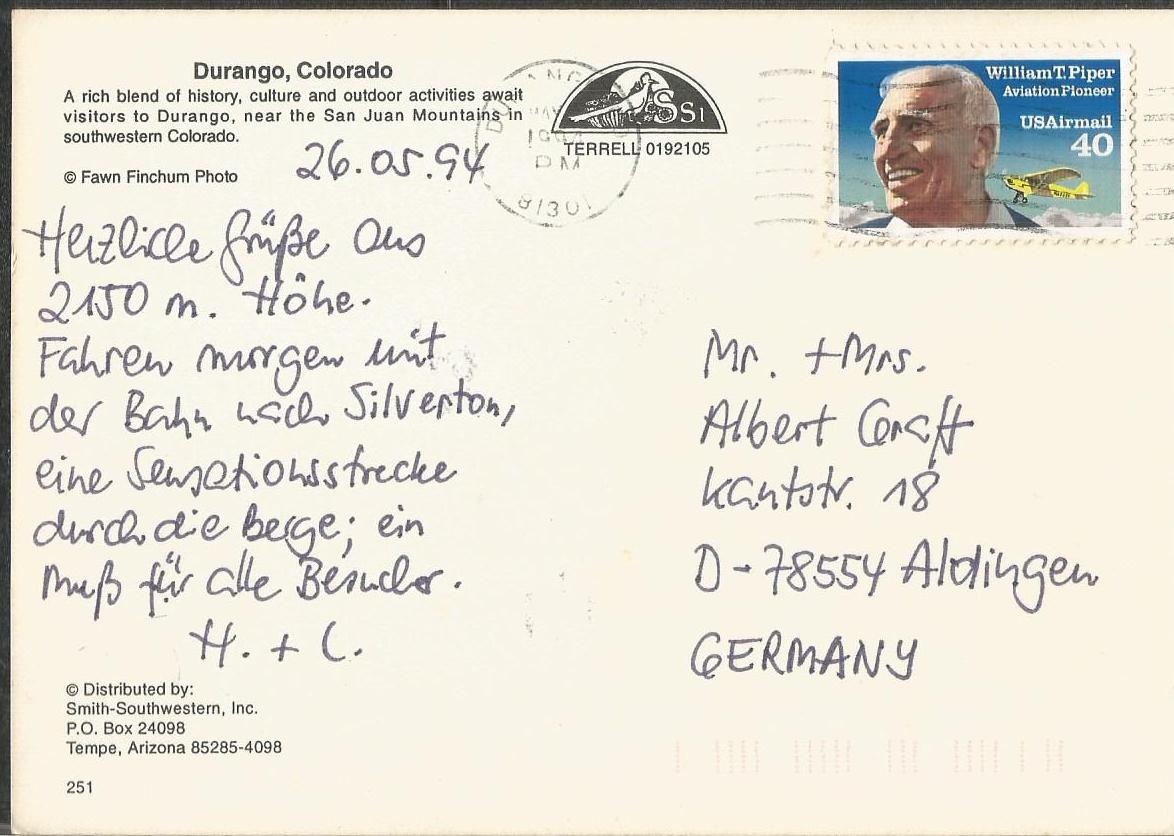 Durango, Colorado
A rich blend of history, culture and outdoor activities await
visitors to Durango, near the San Juan Mountains in
southwestern Colorado.
© Fawn Finchum Photo
26.05.94
PM
81301
SSI
TERRELL 0192105
William T. Piper
Aviation Pioneer
USAirmail
40
Herzliche Grüße aus
2150 m. Höhe.
Fahren morgen mit
der Bahn nach Silverton,
eine Sensationsstrecke
durch die Berge; ein
Muß für alle Besucher.
H. + C.
Mr. + Mrs.
Albert Graff
Kantstr. 18
D-78554 Aldingen
GERMANY
© Distributed by:
Smith-Southwestern, Inc.
P.O. Box 24098
Tempe, Arizona 85285-4098
251